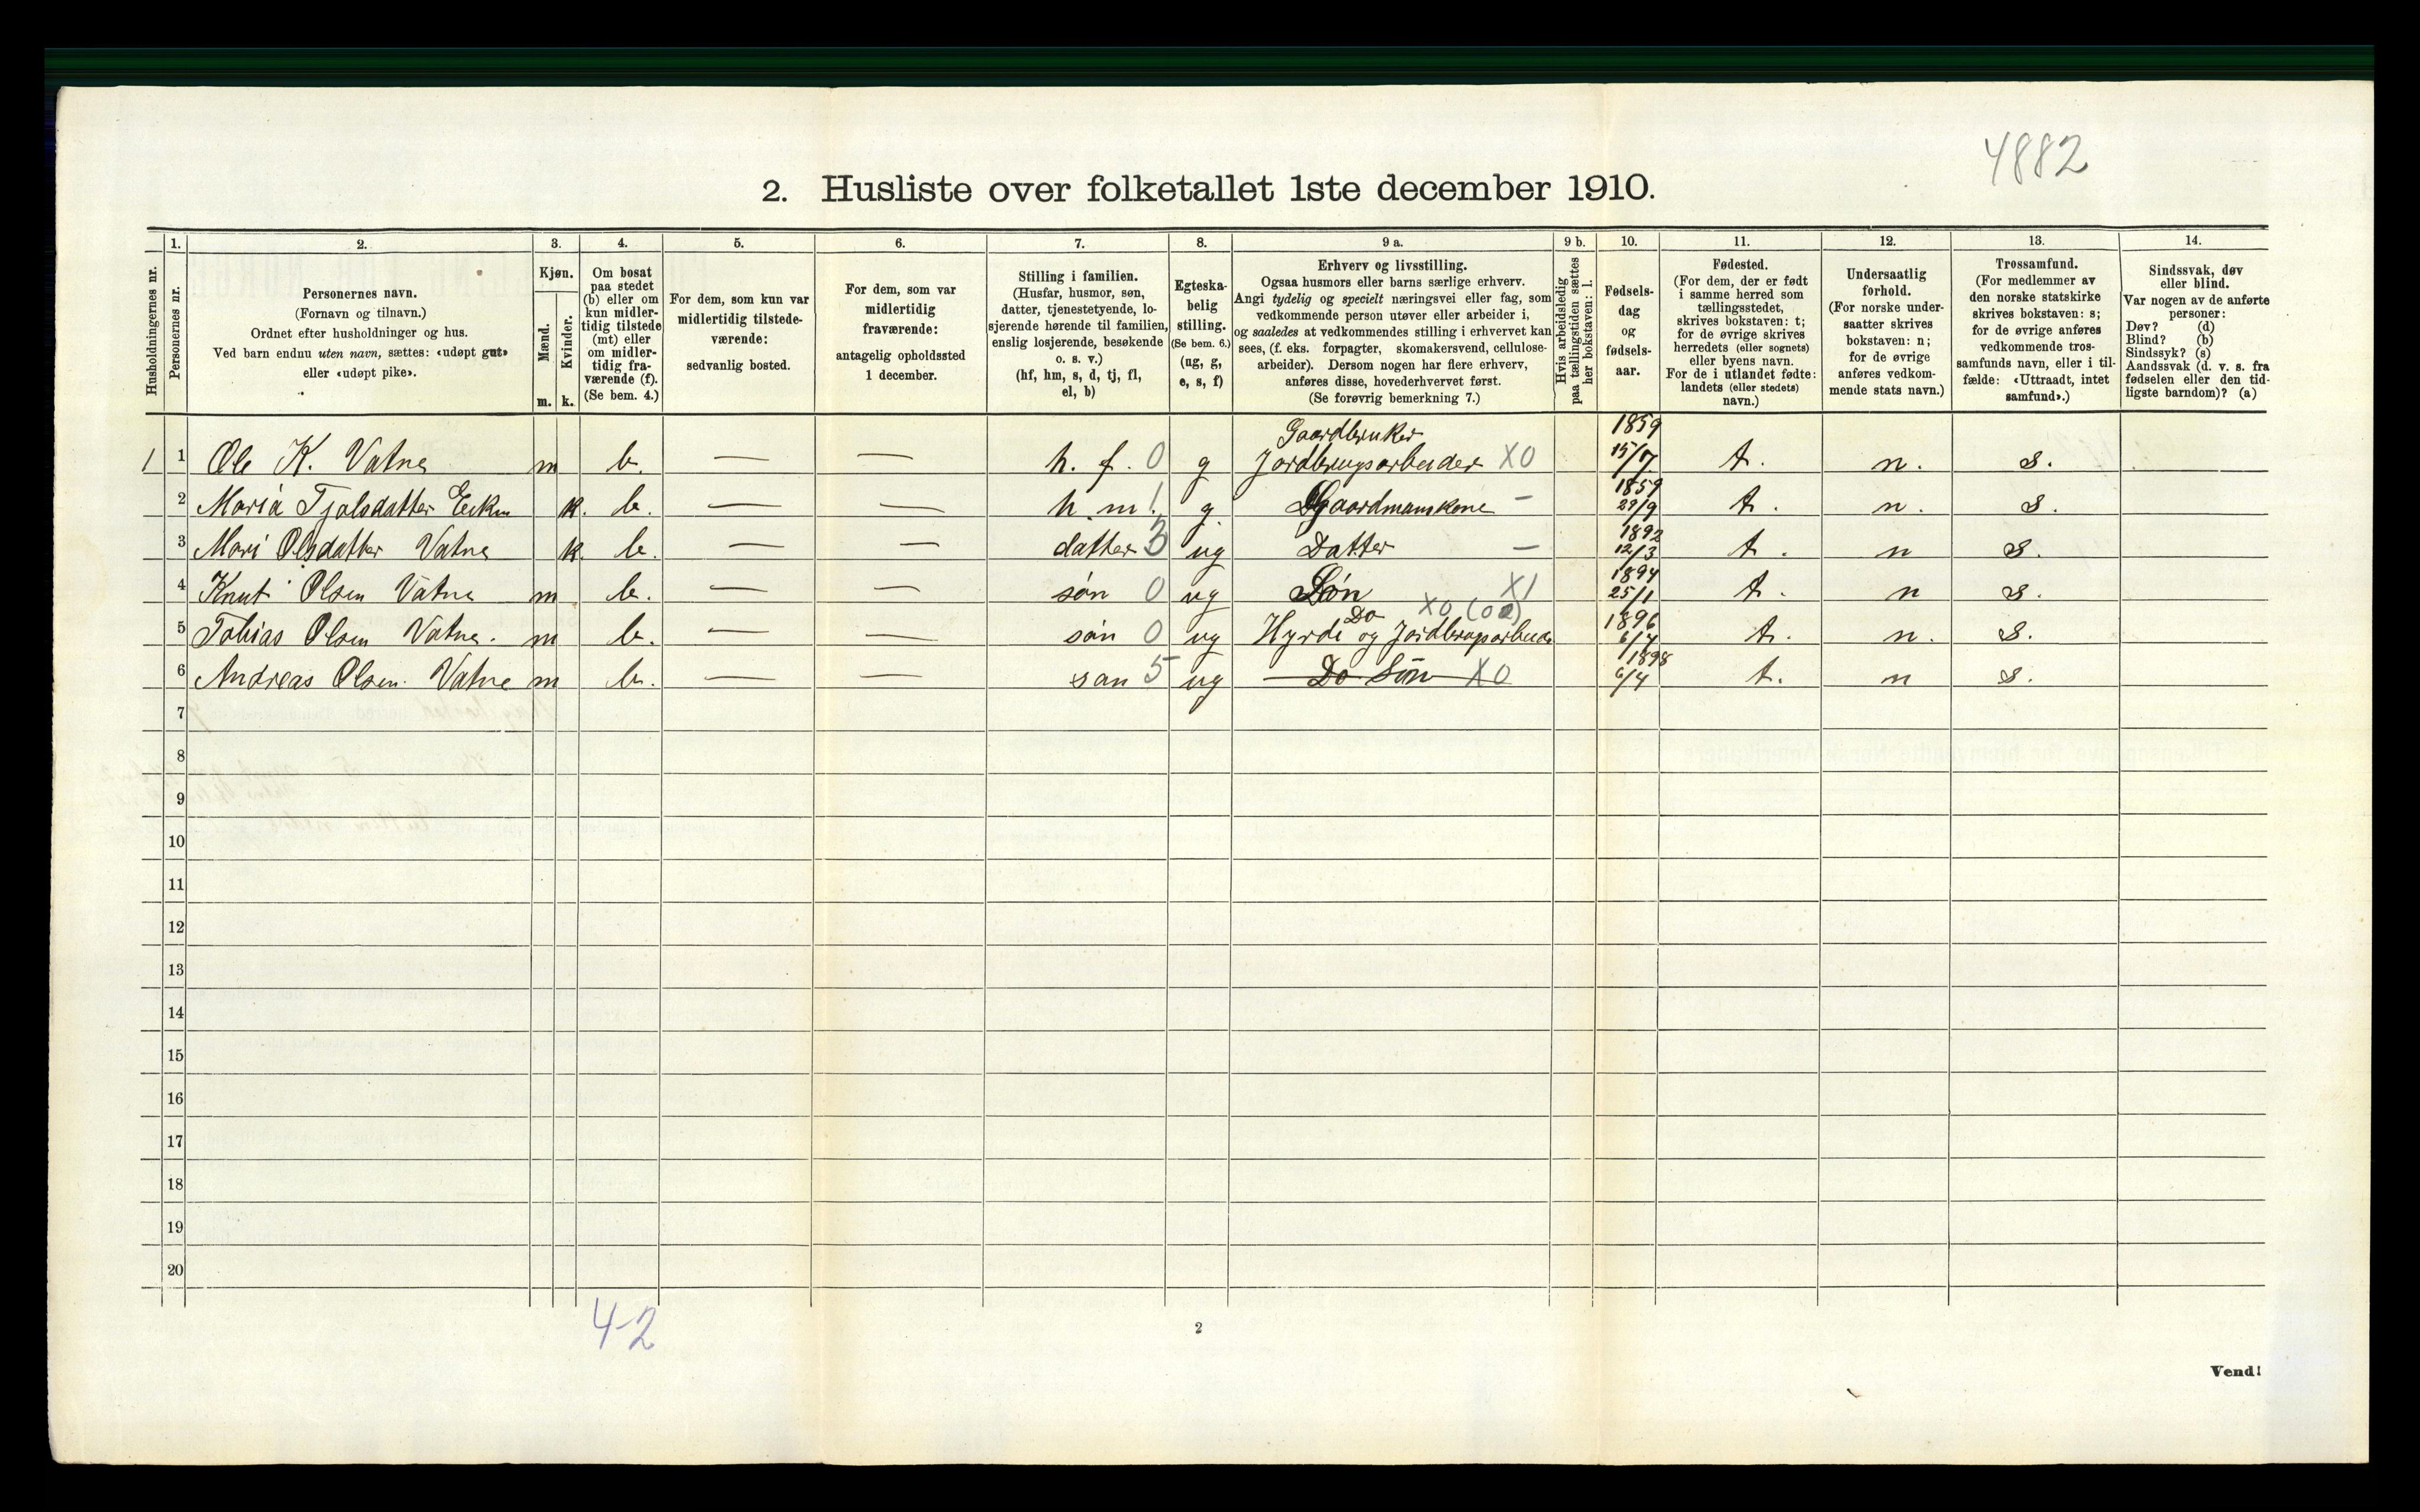 4882
2. Husliste over folketallet 1ste december 1910.
1. 2. 3. 4. 5. 6. 7. 8. 9 a. 9 b. 10. 11. 12. 13. 14.
Husholdningernes nr.
Personernes nr.
Personernes navn.
(Fornavn og tilnavn.)
Ordnet efter husholdninger og hus.
Ved barn endnu uten navn, sættes: «udøpt gut»
eller «udøpt pike».
Kjøn.
Mænd.
Kvinder.
m. k.
Om bosat
paa stedet
(b) eller om
kun midler-
tidig tilstede
(mt) eller
om midler-
tidig fra-
værende (f).
(Se bem. 4.)
For dem, som kun var
midlertidig tilstede-
værende:
sedvanlig bosted.
For dem, som var
midlertidig
fraværende:
antagelig opholdssted
1 december.
Stilling i familien.
(Husfar, husmor, søn,
datter, tjenestetyende, lo-
sjerende hørende til familien,
enslig losjerende, besøkende
o. s. v.)
(hf, hm, s, d, tj, fl,
el, b)
Egteska-
belig
stilling.
(Se bem. 6.)
(ug, g,
e, s, f)
Erhverv og livsstilling.
Ogsaa husmors eller barns særlige erhverv.
Angi tydelig og specielt næringsvei eller fag, som
vedkommende person utøver eller arbeider i,
og saaledes at vedkommendes stilling i erhvervet kan
sees, (f. eks. forpagter, skomakersvend, cellulose-
arbeider). Dersom nogen har flere erhverv,
anføres disse, hovederhvervet først.
(Se forøvrig bemerkning 7.)
Hvis arbeidsledig
paa tællingstiden sættes
her bokstaven: l.
Fødsels-
dag
og
fødsels-
aar.
Fødested.
(For dem, der er født
i samme herred som
tællingsstedet,
skrives bokstaven: t;
for de øvrige skrives
herredets (eller sognets)
eller byens navn.
For de i utlandet fødte:
landets (eller stedets)
navn.)
Undersaatlig
forhold.
(For norske under-
saatter skrives
bokstaven: n;
for de øvrige
anføres vedkom-
mende stats navn.)
Trossamfund.
(For medlemmer av
den norske statskirke
skrives bokstaven: s;
for de øvrige anføres
vedkommende tros-
samfunds navn, eller i til-
fælde: «Uttraadt, intet
samfund».)
Sindssvak, døv
eller blind.
Var nogen av de anførte
personer:
Døv? (d)
Blind? (b)
Sindssyk? (s)
Aandssvak (d. v. s. fra
fødselen eller den tid-
ligste barndom)? (a)
Gaardbruker 1859
1 1 Ole K. Vatne m b. — — h. f. 0 g Jordbrugsarbeider X0 15/7 t. n. s.
1859
2 Maria Tjolsdatter k. b. — — h m. 1 g Gaardmanskone — 29/9 t. n. s.
1892
3 Mari Olsdatter Vatne k. b. — — datter 3 ug Datter — 12/3 t. n s.
1894
4 Knut Olsen Vatne m b. — — søn 0 ug Søn X1 25/1 t. n s.
Do X0 (02) 1896
5 Tobias Olsen Vatne. m b. — — søn 0 ug Hyrde og Jordbrugsarbeid 6/4 t. n. s.
1898
6 Andreas Olsen Vatne m b. — — søn 5 ug Do Søn X0 6/4 t. n s.
7
8
9
10
11
12
13
14
15
16
17
18
19
20
4-2
2
Vend!